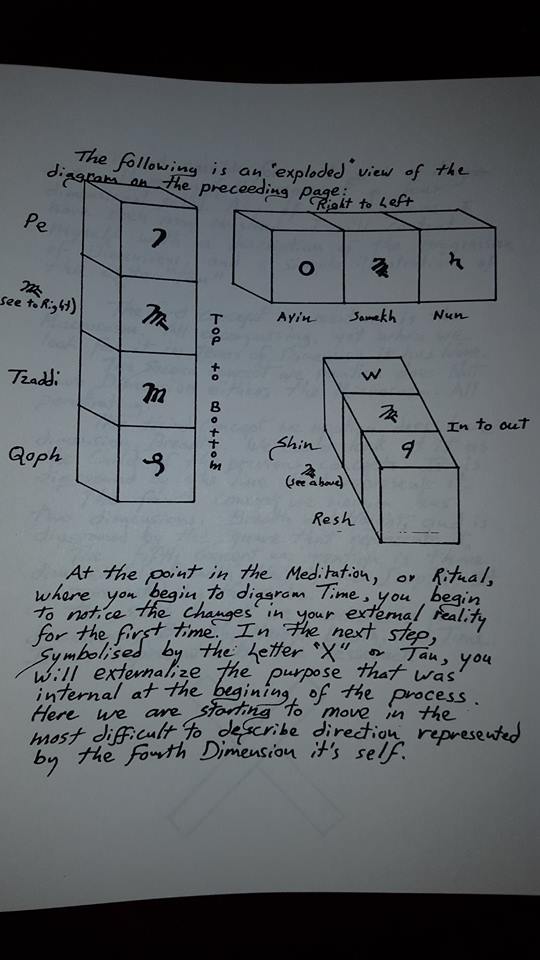 The following is an "exploded" view of the
diagram on the preceeding page:
Right to Left
Pe
see to Right)
Tzaddi
Qoph
Top to Bottom
O
Ayin Samekh Nun
W
In to out
Shin
(see above)
Resh
At the point in the Meditation, or Ritual,
where you begin to diagram Time, you begin
to notice the changes in your external reality
for the first time. In the next step,
Symbolised by the Letter "X" or Tau, you
will externalize the purpose that was
internal at the begining of the process.
Here we are starting to move in the
most difficult to describe direction represented
by the Fourth Dimension it's self.